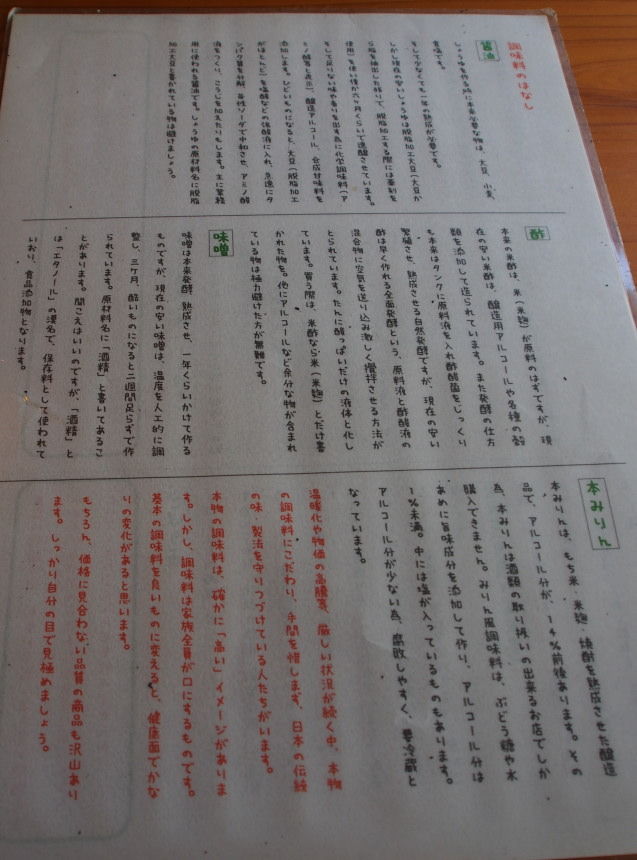 調味料のはなし
醤油
しょうゆを作る時に本来必要な物は、大豆、小麦、
食塩です。
そして少なくても一年の熟成が必要です。
しかし現在の安いしょうゆは脱脂加工大豆(大豆か
ら脂を抽出した残りで、脱脂加工する際には薬剤を
使用)を使い僅か六ヶ月くらいで速醸させています。
そして足りない味や香りを出す為に化学調味料(ア
ミノ酸等と表示)、醸造アルコール、合成甘味料を
添加します。ひどいものになると、大豆(脱脂加工
がほとんど)を塩酸などの強酸液に入れ、急速にタ
ンパク質を分解、苛性ソーダで中和させ、アミノ酸
液をつくり、こうじを加えたりもします。主に業務
用に使われる醤油です。しょうゆの原材料名に脱脂
加工大豆と書かれている物は避けましょう。
酢
本来の米酢は、米(米麹)が原料のはずですが、現
在の安い米酢は、醸造用アルコールや各種の穀
類を添加して造られています。また発酵の仕方
も本来はタンクに原料液を入れ酢酸菌をじっくり
繁殖させ、熟成させる自然発酵ですが、現在の安い
酢は早く作れる全面発酵という、原料液と酢酸液の
混合物に空気を送り込み激しく攪拌させる方法が
とられています。たんに酸っぱいだけの液体と化し
ています。買う際は、米酢なら米(米麹)とだけ書
かれた物を。他にアルコールなど余分な物が含まれ
ている物は極力避けた方が無難です。
味噌
味噌は本来発酵、熟成させ、一年くらいかけて作る
ものですが、現在の安い味噌は、温度を人工的に調
整し、三ヶ月、酷いものになると二週間足らずで作
られています。原材料名に「酒精」と書いてあるこ
とがあります。聞こえはいいのですが、「酒精」と
は「エタノール」の漢名で、保存料として使われて
いおり、食品添加物となります。
本みりん
本みりんは、もち米・米麹・焼酎を熟成させた醸造
品で、アルコール分が、14%前後あります。その
為、本みりんは酒類の取り扱いの出来るお店でしか
購入できません。みりん風調味料は、ぶどう糖や水
あめに旨味成分を添加して作り、アルコール分は
1%未満。中には塩が入っているものもあります。
アルコール分が少ない為、腐敗しやすく、要冷蔵と
なっています。
温暖化や物価の高騰等、厳しい状況が続く中、本物
の調味料にこだわり、手間を惜しまず、日本の伝統
の味・製法を守りつづけている人たちがいます。
本物の調味料は、確かに「高い」イメージがありま
す。しかし、調味料は家族全員が口にするものです。
基本の調味料を良いものに変えると、健康面でかな
りの変化があると思います。
もちろん、価格に見合わない品質の商品も沢山あり
ます。しっかり自分の目で見極めましょう。